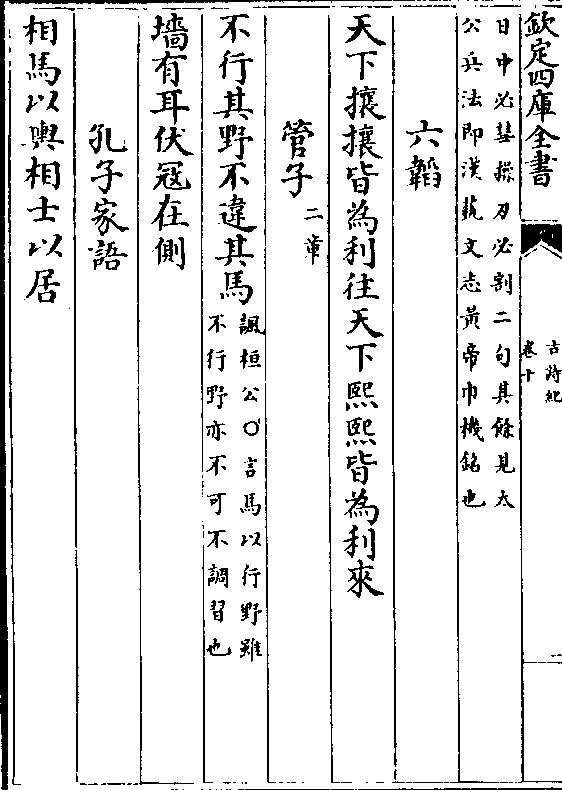 欽定四庫全書
古詩紀
卷十
日中必㷉操刀必割二句其餘見太
公兵法即漢藝文志黃帝巾機銘也
六韜
天下攘攘皆為利往天下熙熙皆為利來
管子二章
不行其野不違其馬諷桓公○言馬以行野雖
不行野亦不可不調習也
墻有耳伏冦在側
孔子家語
相馬以輿相士以居